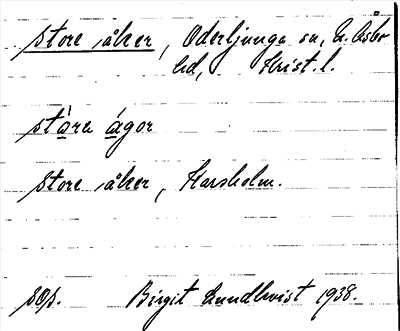 Store åker, Oderljunga sn, N. Åsbo
hd, Krist. l.
stóra ágor
Store åker, Karsholm.
sOp. Birgit Lundkvist 1938.